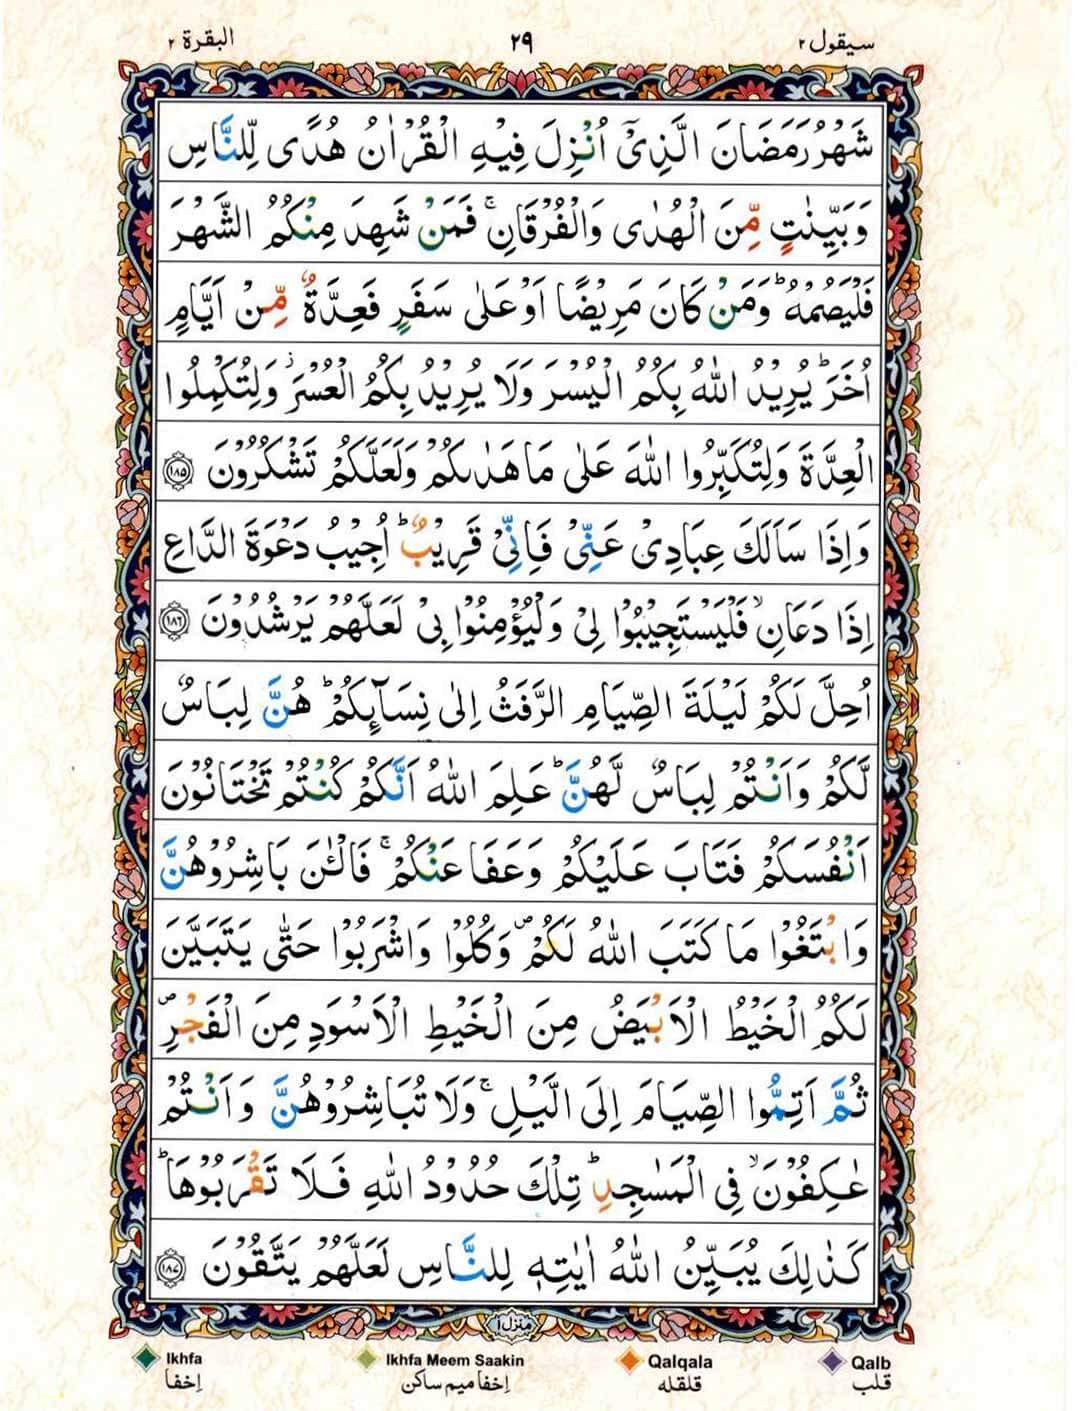 سيقول ٢ ٢٩ البقرة ٢
شَهْرُ رَمَضَانَ الَّذِىْۤ اُنْزِلَ فِيْهِ الْقُرْاٰنُ هُدًى لِّلنَّاسِ
وَبَيِّنٰتٍ مِّنَ الْهُدٰى وَالْفُرْقَانِۚ فَمَنْ شَهِدَ مِنْكُمُ الشَّهْرَ
فَلْيَصُمْهُؕ وَمَنْ كَانَ مَرِيْضًا اَوْ عَلٰى سَفَرٍ فَعِدَّةٌ مِّنْ اَيَّامٍ
اُخَرَؕ يُرِيْدُ اللّٰهُ بِكُمُ الْيُسْرَ وَلَا يُرِيْدُ بِكُمُ الْعُسْرَؗ وَلِتُكْمِلُوا
الْعِدَّةَ وَلِتُكَبِّرُوا اللّٰهَ عَلٰى مَا هَدٰىكُمْ وَلَعَلَّكُمْ تَشْكُرُوْنَ ﴿١٨٥﴾
وَاِذَا سَاَلَكَ عِبَادِىْ عَنِّىْ فَاِنِّىْ قَرِيْبٌؕ اُجِيْبُ دَعْوَةَ الدَّاعِ
اِذَا دَعَانِۙ فَلْيَسْتَجِيْبُوْا لِىْ وَلْيُؤْمِنُوْا بِىْ لَعَلَّهُمْ يَرْشُدُوْنَ ﴿١٨٦﴾
اُحِلَّ لَكُمْ لَيْلَةَ الصِّيَامِ الرَّفَثُ اِلٰى نِسَآئِكُمْؕ هُنَّ لِبَاسٌ
لَّكُمْ وَاَنْتُمْ لِبَاسٌ لَّهُنَّؕ عَلِمَ اللّٰهُ اَنَّكُمْ كُنْتُمْ تَخْتَانُوْنَ
اَنْفُسَكُمْ فَتَابَ عَلَيْكُمْ وَعَفَا عَنْكُمْۚ فَالْـٰٔنَ بَاشِرُوْهُنَّ
وَابْتَغُوْا مَا كَتَبَ اللّٰهُ لَكُمْۖ وَكُلُوْا وَاشْرَبُوْا حَتّٰى يَتَبَيَّنَ
لَكُمُ الْخَيْطُ الْاَبْيَضُ مِنَ الْخَيْطِ الْاَسْوَدِ مِنَ الْفَجْرِۖ
ثُمَّ اَتِمُّوا الصِّيَامَ اِلَى الَّيْلِۚ وَلَا تُبَاشِرُوْهُنَّ وَاَنْتُمْ
عٰكِفُوْنَۙ فِى الْمَسٰجِدِؕ تِلْكَ حُدُوْدُ اللّٰهِ فَلَا تَقْرَبُوْهَاؕ
كَذٰلِكَ يُبَيِّنُ اللّٰهُ اٰيٰتِهٖ لِلنَّاسِ لَعَلَّهُمْ يَتَّقُوْنَ ﴿١٨٧﴾
منزل١
Ikhfa Ikhfa Meem Saakin Qalqala Qalb
اِخفا اِخفا میم ساکن قلقله قلب